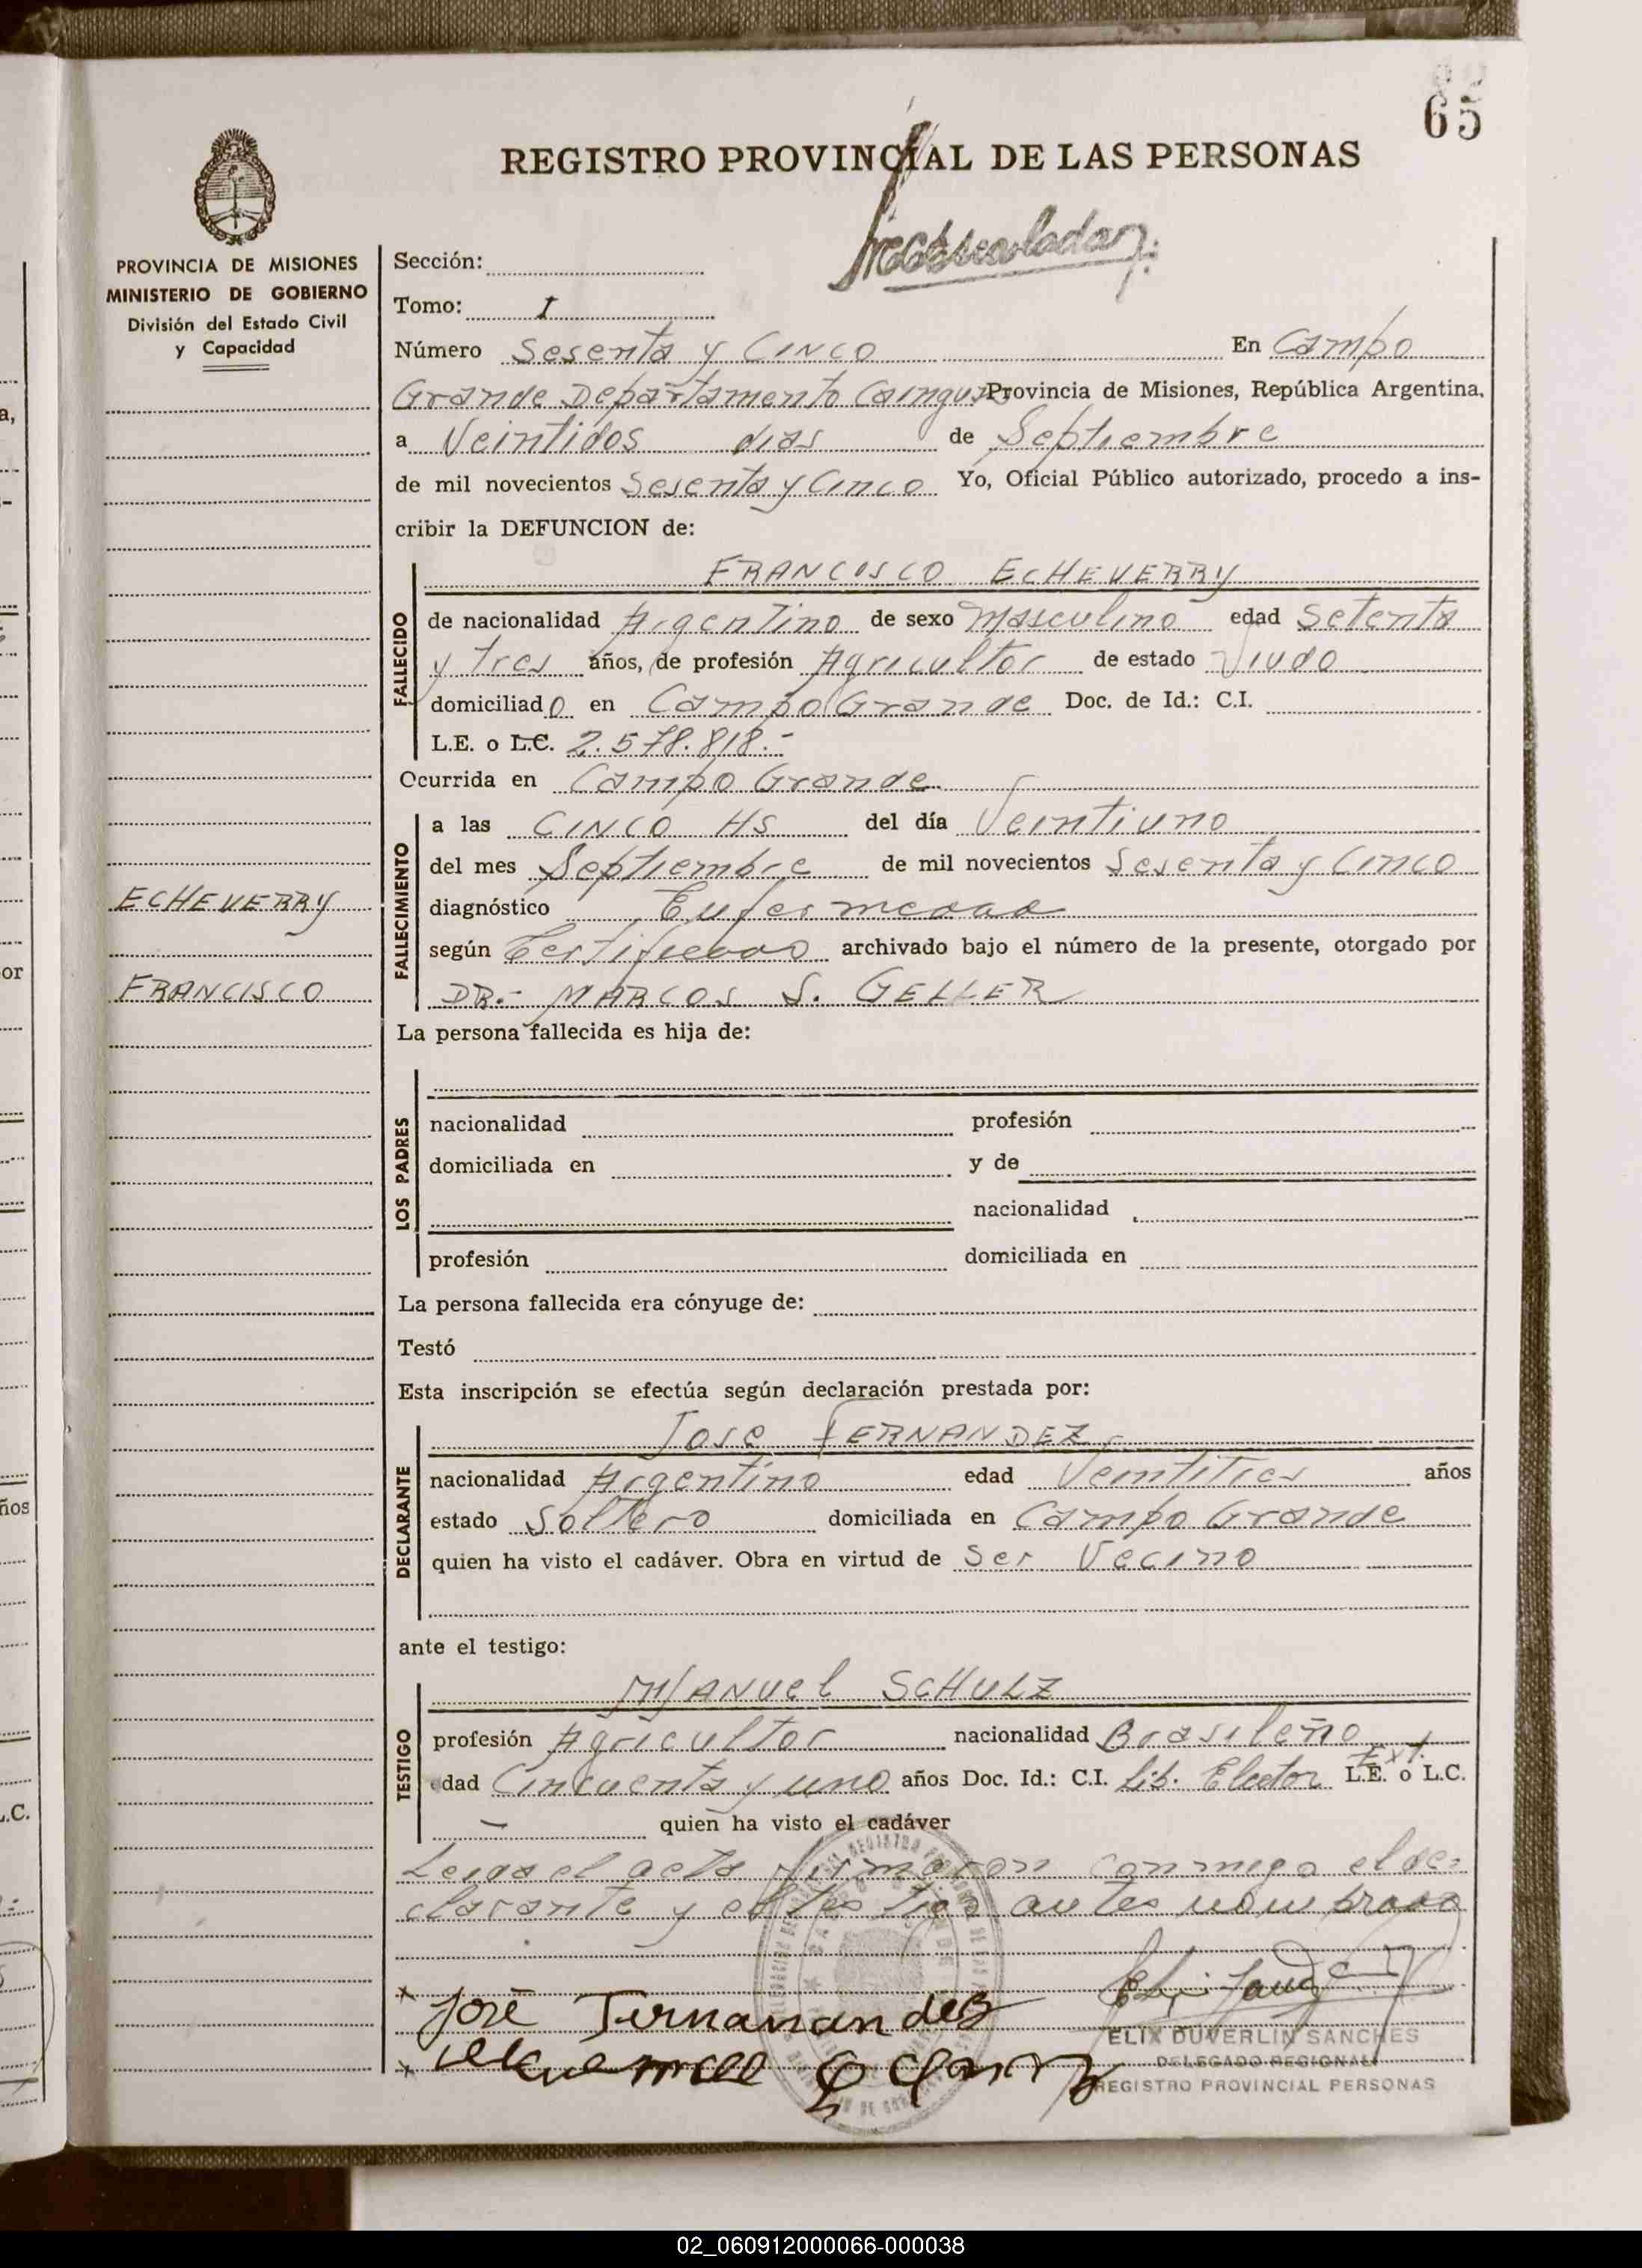 65
REGISTRO PROVINCIAL DE LAS PERSONAS
PROVINCIA DE MISIONES
MINISTERIO DE GOBIERNO
División del Estado Civil
y Capacidad
ECHEVERRY
FRANCISCO
Sección:
Tomo: I
Número Sesenta y Cinco En Campo
Grande Departamento Cainguas Provincia de Misiones, República Argentina,
a Veintidos dias de Septiembre
de mil novecientos Sesenta y Cinco Yo, Oficial Público autorizado, procedo a ins-
cribir la DEFUNCION de:
FRANCISCO ECHEVERRY
FALLECIDO
de nacionalidad Argentino de sexo Masculino edad Setenta
y tres años, de profesión Agricultor de estado Viudo
domiciliado en Campo Grande Doc. de Id.: C.I.
L.E. o L.C. 2.578.818.-
Ocurrida en Campo Grande
FALLECIMIENTO
a las CINCO HS del día Veintiuno
del mes Septiembre de mil novecientos Sesenta y Cinco
diagnóstico Enfermedad
según Certificado archivado bajo el número de la presente, otorgado por
DR.- MARCOS S. GELLER
La persona fallecida es hija de:
LOS PADRES
nacionalidad profesión
domiciliada en y de
nacionalidad
profesión domiciliada en
La persona fallecida era cónyuge de:
Testó
Esta inscripción se efectúa según declaración prestada por:
Jose FERNANDEZ
DECLARANTE
nacionalidad Argentino edad Veintitres años
estado Soltero domiciliada en Campo Grande
quien ha visto el cadáver. Obra en virtud de Ser Vecino
ante el testigo:
MANUEl SCHULZ
TESTIGO
profesión Agricultor nacionalidad Brasileño
edad Cincuenta y uno años Doc. Id.: C.I. Lib. Elector Ext. L.E. o L.C.
- quien ha visto el cadáver
Leida el acta firmaron conmigo el de-
clarante y el testigo antes nombrado
José Fernandes
ELIX DUVERLIN SANCHES
DELEGADO REGIONAL
REGISTRO PROVINCIAL PERSONAS
02_060912000066-000038